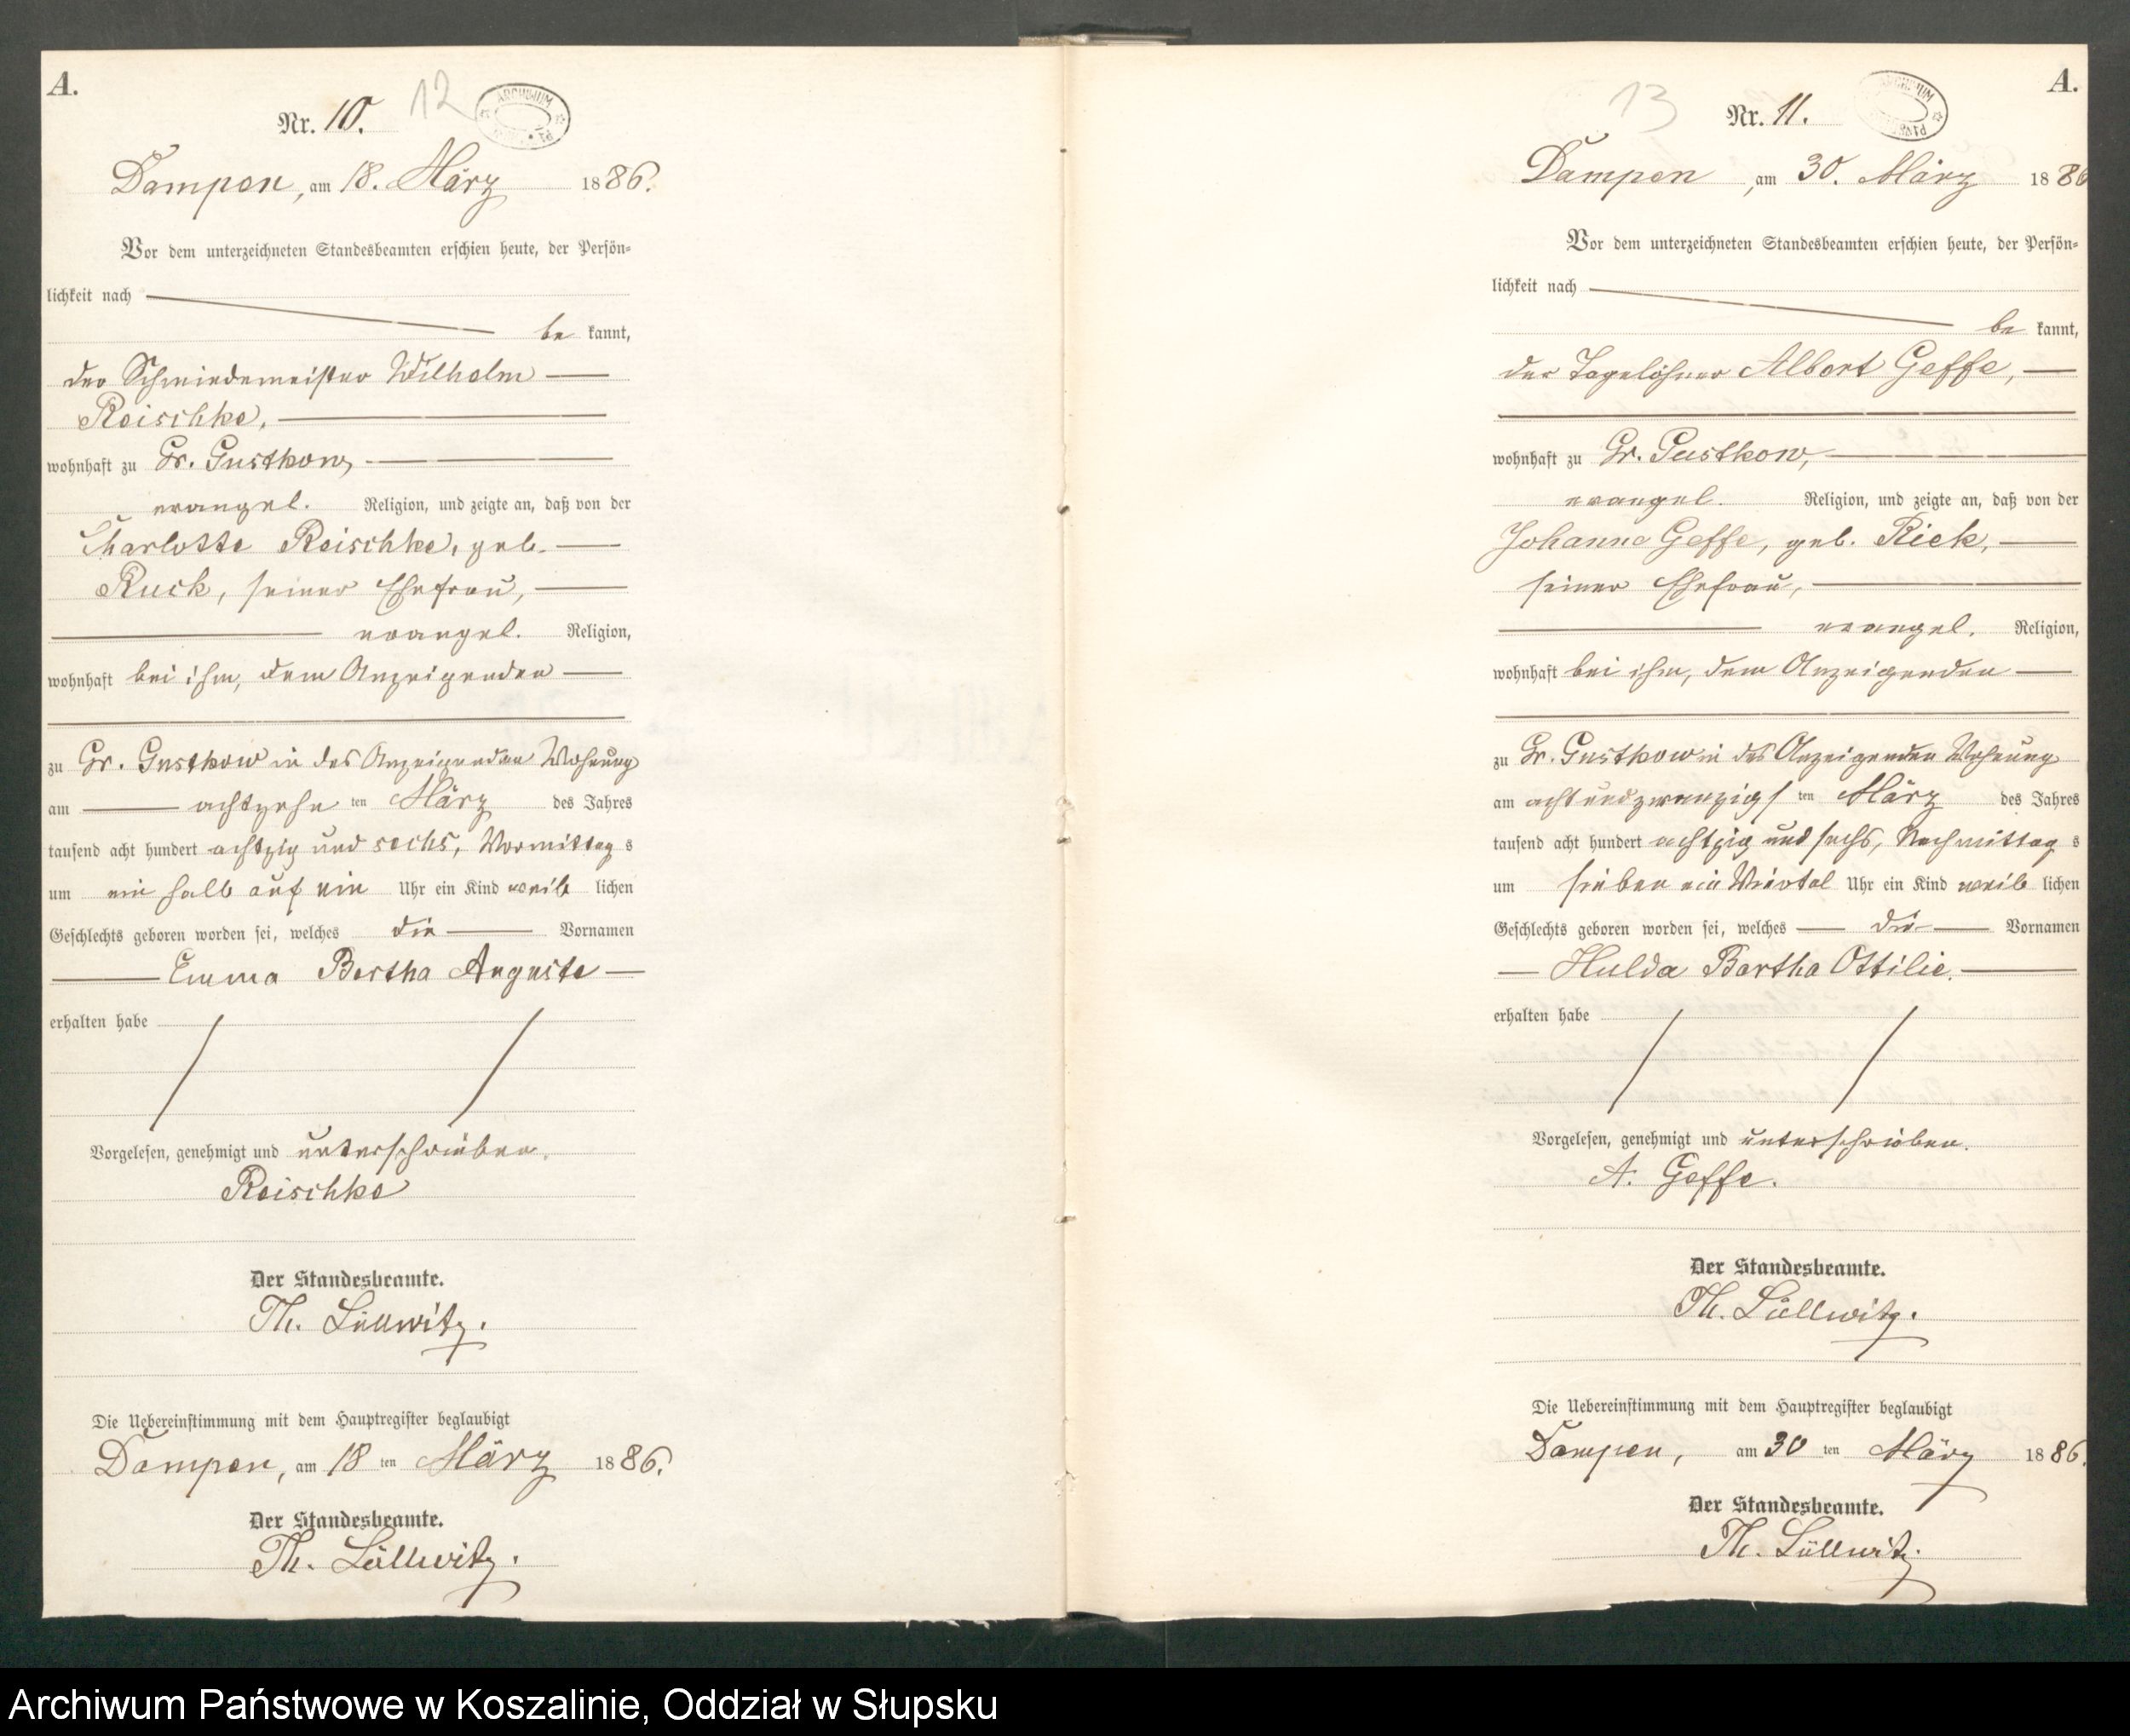 A.
Nr. 10.
12
ARCHIWUM
Dampen, am 18. März 1886.
Vor dem unterzeichneten Standesbeamten erschien heute, der Persön-
lichkeit nach
be kannt,
der Schmiedemeister Wilhelm
Reischke,
wohnhaft zu Gr. Gustkow,
evangel. Religion, und zeigte an, daß von der
Charlotte Reischke, geb.
Ruck, seiner Ehefrau,
evangel. Religion,
wohnhaft bei ihm, dem Anzeigenden
zu Gr. Gustkow in des Anzeigenden Wohnung
am achtzehn ten März des Jahres
tausend acht hundert achtzig und sechs, Vormittag s
um ein halb auf ein Uhr ein Kind weib lichen
Geschlechts geboren worden sei, welches die Vornamen
Emma Bertha Auguste
erhalten habe
Vorgelesen, genehmigt und unterschrieben.
Reischke
Der Standesbeamte.
Th. Lüllwitz.
Die Uebereinstimmung mit dem Hauptregister beglaubigt
Dampen, am 18 ten März 1886.
Der Standesbeamte.
Th. Lüllwitz.
A.
13
Nr. 11.
ARCHIWUM
Dampen, am 30. März 1886
Vor dem unterzeichneten Standesbeamten erschien heute, der Persön-
lichkeit nach
be kannt,
der Tagelöhner Albert Geffe,
wohnhaft zu Gr. Gustkow,
evangel. Religion, und zeigte an, daß von der
Johanne Geffe, geb. Riek,
seiner Ehefrau,
evangel. Religion,
wohnhaft bei ihm, dem Anzeigenden
zu Gr. Gustkow in des Anzeigenden Wohnung
am acht und zwanzigs ten März des Jahres
tausend acht hundert achtzig und sechs, Nachmittag s
um sieben ein Viertel Uhr ein Kind weib lichen
Geschlechts geboren worden sei, welches die Vornamen
Hulda Bertha Ottilie.
erhalten habe
Vorgelesen, genehmigt und unterschrieben.
A. Geffe.
Der Standesbeamte.
Th. Lüllwitz.
Die Uebereinstimmung mit dem Hauptregister beglaubigt
Dampen, am 30 ten März 1886.
Der Standesbeamte.
Th. Lüllwitz.
Archiwum Państwowe w Koszalinie, Oddział w Słupsku